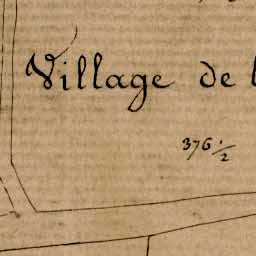 Village de
376 1/2